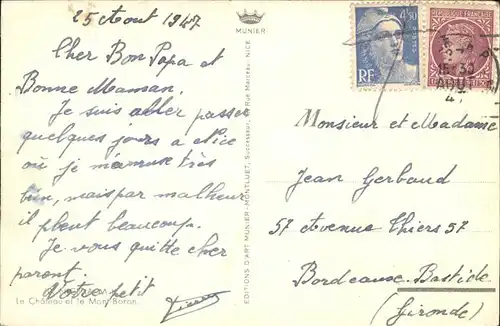 25 Aout 1947
Cher Bon Papa et
Bonne Maman,
Je suis aller passer
quelques jours a Nice
où je m'amuse très
bien, mais par malheur
il pleut beaucoup.
Je vous quitte cher
parent.
Votre petit
Le Château et le Mont Boron
MUNIER
EDITIONS D'ART MUNIER - MONTLUET, Successeur, Rue Marceau, NICE
4,50
RF
REPUBLIQUE FRANÇAISE
AOUT
Monsieur et Madame
Jean Gerbaud
57 Avenue Thiers 57
Bordeaux-Bastide
(Gironde)